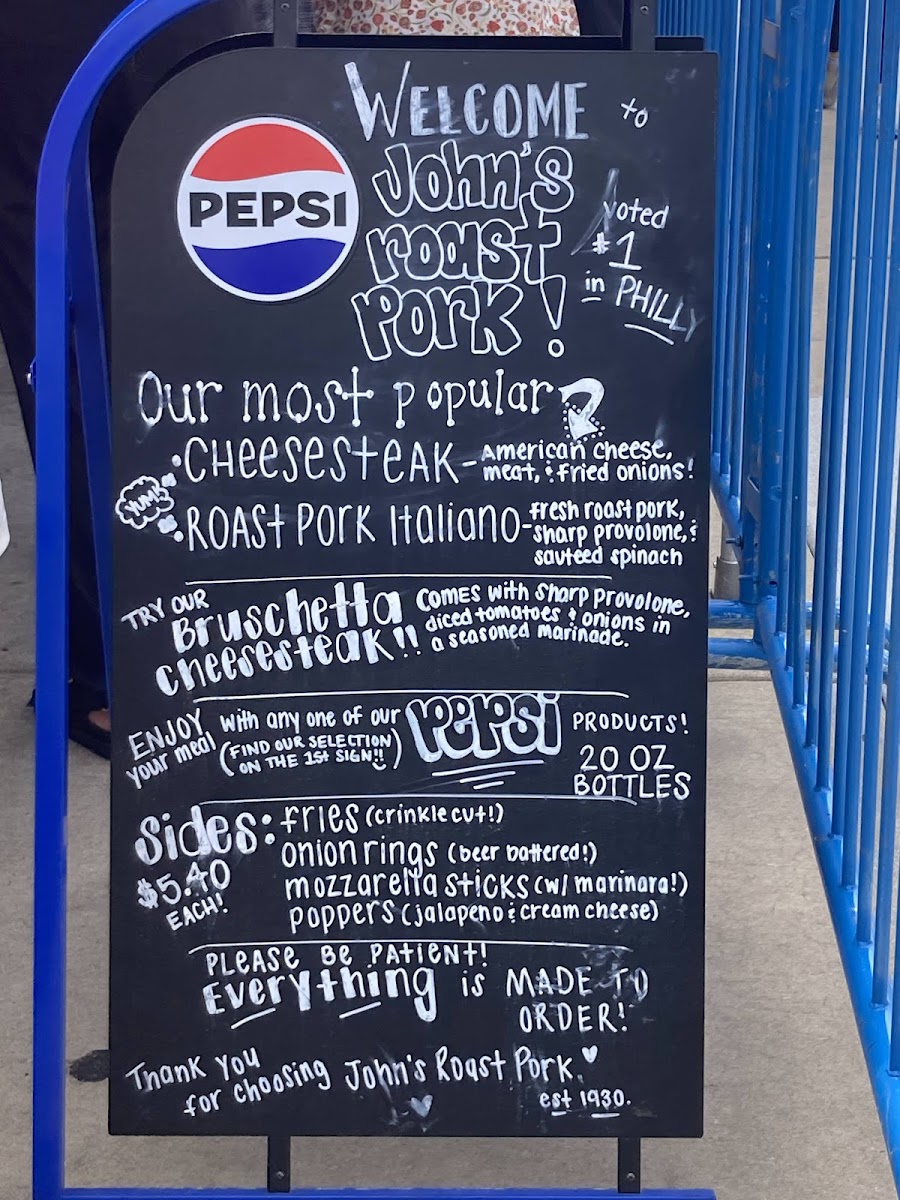 WELCOME to
PEPSI
John's
roast
Pork!
Voted
#1
in PHILLY
Our most popular
• CHEESESTEAK - American cheese,
meat, & fried onions!
YUM!
• ROAST PORK Italiano - fresh roast pork,
sharp provolone, &
sauteed spinach
TRY OUR
Bruschetta
cheesesteak!!
comes with sharp provolone,
diced tomatoes & onions in
a seasoned marinade.
ENJOY
your meal
with any one of our
(FIND OUR SELECTION
ON THE 1st SIGN!!)
pepsi
PRODUCTS!
20 OZ
BOTTLES
Sides:
$5.40
EACH!
fries (crinkle cut!)
onion rings (beer battered!)
mozzarella sticks (w/ marinara!)
poppers (jalapeno & cream cheese)
PLEASE BE PATIENT!
Everything is MADE TO
ORDER!
Thank You
for choosing John's Roast Pork.
est 1930.